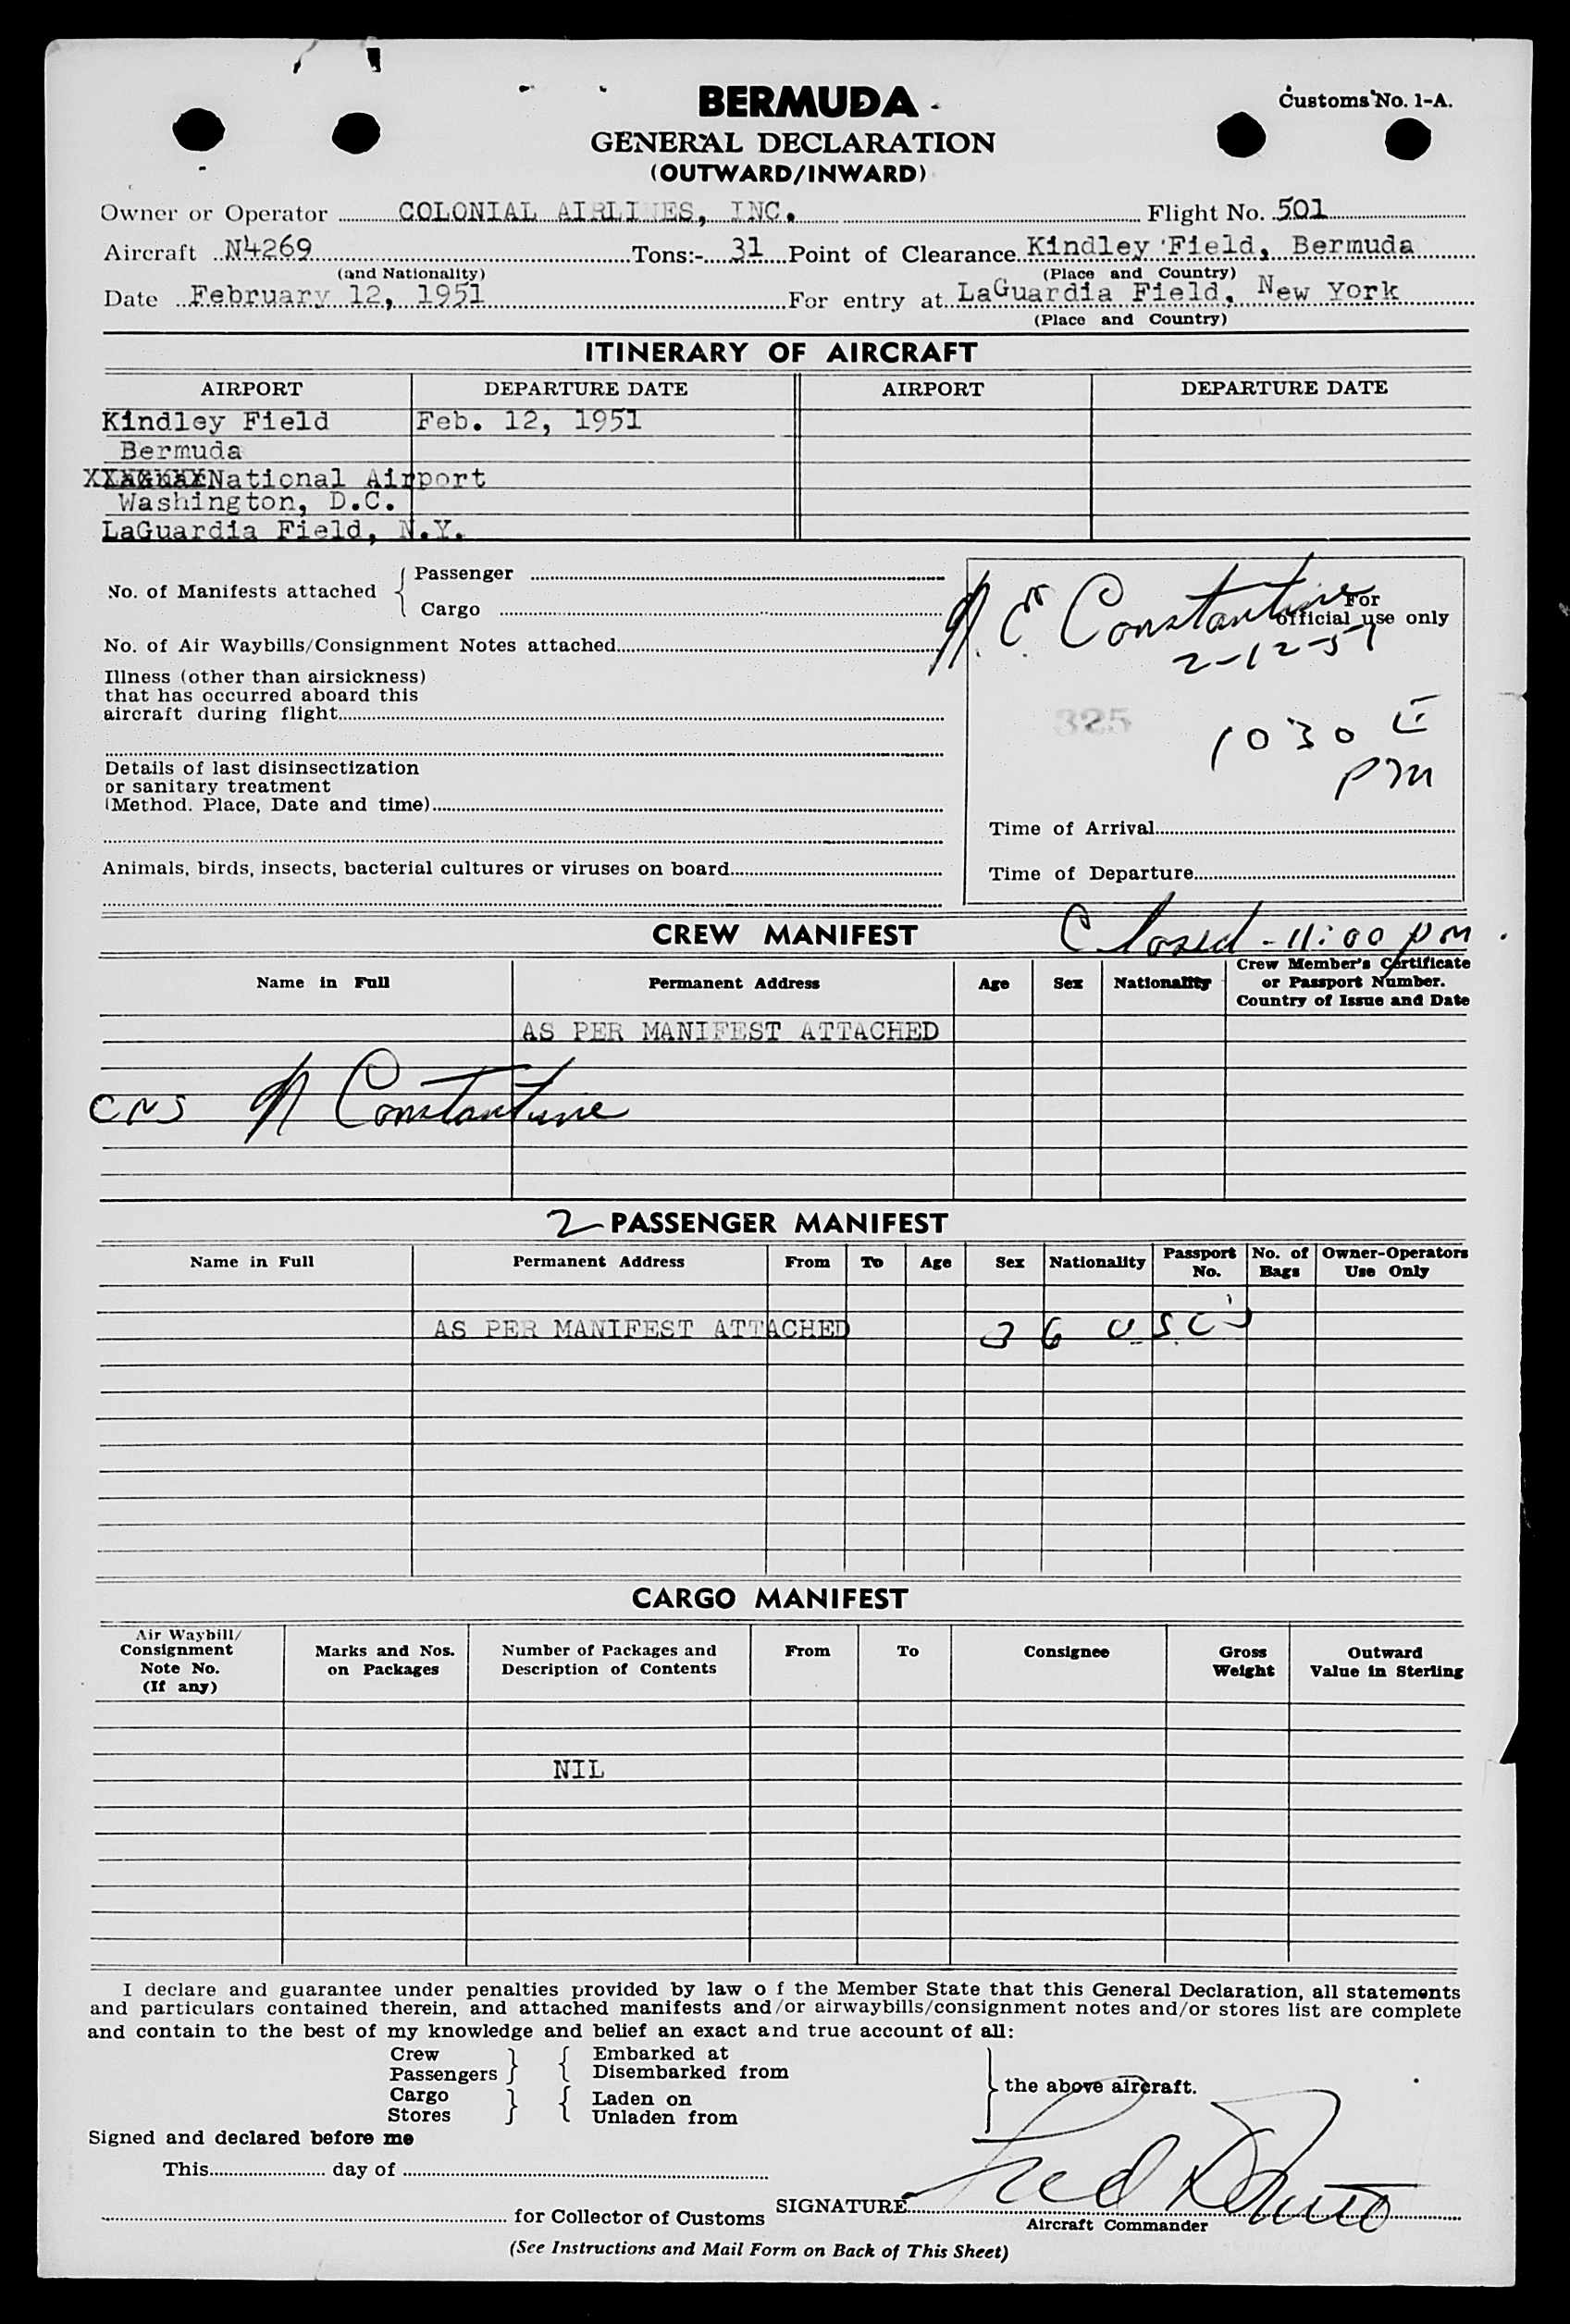 Customs No. 1-A.
BERMUDA
GENERAL DECLARATION
(OUTWARD/INWARD)
Owner or Operator COLONIAL AIRLINES, INC. Flight No. 501
Aircraft N4269 Tons:- 31 Point of Clearance Kindley Field, Bermuda
(and Nationality) (Place and Country)
Date February 12, 1951 For entry at LaGuardia Field, New York
(Place and Country)
ITINERARY OF AIRCRAFT
AIRPORT DEPARTURE DATE AIRPORT DEPARTURE DATE
Kindley Field Feb. 12, 1951
Bermuda
National Airport
Washington, D.C.
LaGuardia Field, N.Y.
No. of Manifests attached { Passenger
Cargo
No. of Air Waybills/Consignment Notes attached
Illness (other than airsickness)
that has occurred aboard this
aircraft during flight
Details of last disinsectization
or sanitary treatment
(Method. Place, Date and time)
Animals, birds, insects, bacterial cultures or viruses on board
N. E. Constantine
For
official use only
2-12-51
325
1030
PM
Time of Arrival
Time of Departure
Closed - 11:00 pm
CREW MANIFEST
Name in Full Permanent Address Age Sex Nationality Crew Member's Certificate
or Passport Number.
Country of Issue and Date
AS PER MANIFEST ATTACHED
CNS N Constantine
2 PASSENGER MANIFEST
Name in Full Permanent Address From To Age Sex Nationality Passport No. No. of Bags Owner-Operators Use Only
AS PER MANIFEST ATTACHED 36 U.S.C's
CARGO MANIFEST
Air Waybill/
Consignment
Note No.
(If any)
Marks and Nos.
on Packages
Number of Packages and
Description of Contents
From To Consignee
Gross
Weight
Outward
Value in Sterling
NIL
I declare and guarantee under penalties provided by law o f the Member State that this General Declaration, all statements
and particulars contained therein, and attached manifests and/or airwaybills/consignment notes and/or stores list are complete
and contain to the best of my knowledge and belief an exact and true account of all:
Crew } { Embarked at
Passengers } { Disembarked from
the above aircraft.
Cargo } { Laden on
Stores } { Unladen from
Signed and declared before me
This day of
for Collector of Customs SIGNATURE
Aircraft Commander
(See Instructions and Mail Form on Back of This Sheet)